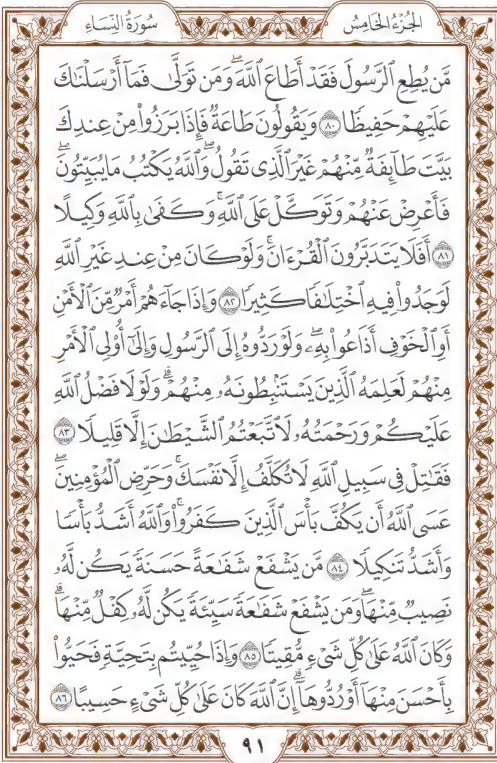 الجُزْءُ الخَامِسُ سُورَةُ النِّسَاءِ
مَّن يُطِعِ ٱلرَّسُولَ فَقَدۡ أَطَاعَ ٱللَّهَۖ وَمَن تَوَلَّىٰ فَمَآ أَرۡسَلۡنَٰكَ
عَلَيۡهِمۡ حَفِيظٗا ٨٠ وَيَقُولُونَ طَاعَةٞ فَإِذَا بَرَزُواْ مِنۡ عِندِكَ
بَيَّتَ طَآئِفَةٞ مِّنۡهُمۡ غَيۡرَ ٱلَّذِي تَقُولُۖ وَٱللَّهُ يَكۡتُبُ مَا يُبَيِّتُونَۖ
فَأَعۡرِضۡ عَنۡهُمۡ وَتَوَكَّلۡ عَلَى ٱللَّهِۚ وَكَفَىٰ بِٱللَّهِ وَكِيلًا
٨١ أَفَلَا يَتَدَبَّرُونَ ٱلۡقُرۡءَانَۚ وَلَوۡ كَانَ مِنۡ عِندِ غَيۡرِ ٱللَّهِ
لَوَجَدُواْ فِيهِ ٱخۡتِلَٰفٗا كَثِيرٗا ٨٢ وَإِذَا جَآءَهُمۡ أَمۡرٞ مِّنَ ٱلۡأَمۡنِ
أَوِ ٱلۡخَوۡفِ أَذَاعُواْ بِهِۦۖ وَلَوۡ رَدُّوهُ إِلَى ٱلرَّسُولِ وَإِلَىٰٓ أُوْلِي ٱلۡأَمۡرِ
مِنۡهُمۡ لَعَلِمَهُ ٱلَّذِينَ يَسۡتَنۢبِطُونَهُۥ مِنۡهُمۡۗ وَلَوۡلَا فَضۡلُ ٱللَّهِ
عَلَيۡكُمۡ وَرَحۡمَتُهُۥ لَٱتَّبَعۡتُمُ ٱلشَّيۡطَٰنَ إِلَّا قَلِيلٗا ٨٣
فَقَٰتِلۡ فِي سَبِيلِ ٱللَّهِ لَا تُكَلَّفُ إِلَّا نَفۡسَكَۚ وَحَرِّضِ ٱلۡمُؤۡمِنِينَۖ
عَسَى ٱللَّهُ أَن يَكُفَّ بَأۡسَ ٱلَّذِينَ كَفَرُواْۚ وَٱللَّهُ أَشَدُّ بَأۡسٗا
وَأَشَدُّ تَنكِيلٗا ٨٤ مَّن يَشۡفَعۡ شَفَٰعَةً حَسَنَةٗ يَكُن لَّهُۥ
نَصِيبٞ مِّنۡهَاۖ وَمَن يَشۡفَعۡ شَفَٰعَةٗ سَيِّئَةٗ يَكُن لَّهُۥ كِفۡلٞ مِّنۡهَاۗ
وَكَانَ ٱللَّهُ عَلَىٰ كُلِّ شَيۡءٖ مُّقِيتٗا ٨٥ وَإِذَا حُيِّيتُم بِتَحِيَّةٖ فَحَيُّواْ
بِأَحۡسَنَ مِنۡهَآ أَوۡ رُدُّوهَآۗ إِنَّ ٱللَّهَ كَانَ عَلَىٰ كُلِّ شَيۡءٍ حَسِيبًا ٨٦
٩١